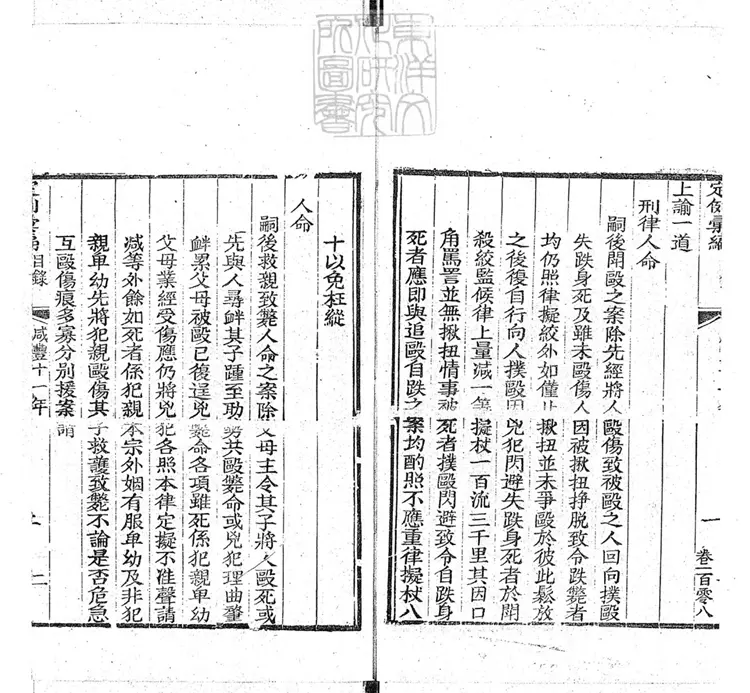 東洋文
化研究
所圖書
定例彙編
卷一百零八
一
上諭一道
刑律人命
嗣後鬭毆之案除先經將人毆傷致被毆之人回向撲毆
失跌身死及雖未毆傷人因被揪扭掙脫致令跌斃者
均仍照律擬絞外如僅止揪扭並未爭毆於彼此鬆放
之後復自行向人撲毆因兇犯閃避失跌身死者於鬭
殺絞監候律上量減一等擬杖一百流三千里其因口
角罵詈並無揪扭情事被死者撲毆閃避致令自跌身
死者應即與追毆自跌之案均酌照不應重律擬杖八
十以免枉縱
人命
嗣後救親致斃人命之案除父母主令其子將人毆死或
先與人尋衅其子踵至助勢共毆斃命或兇犯理曲肇
衅累父母被毆已復逞兇斃命各項雖死係犯親卑幼
父母業經受傷應仍將兇犯各照本律定擬不准聲請
減等外餘如死者係犯親本宗外姻有服卑幼及非犯
親卑幼先將犯親毆傷其子救護致斃不論是否危急
互毆傷痕多寡分別援案請
定例彙編目錄 咸豐十一年
二